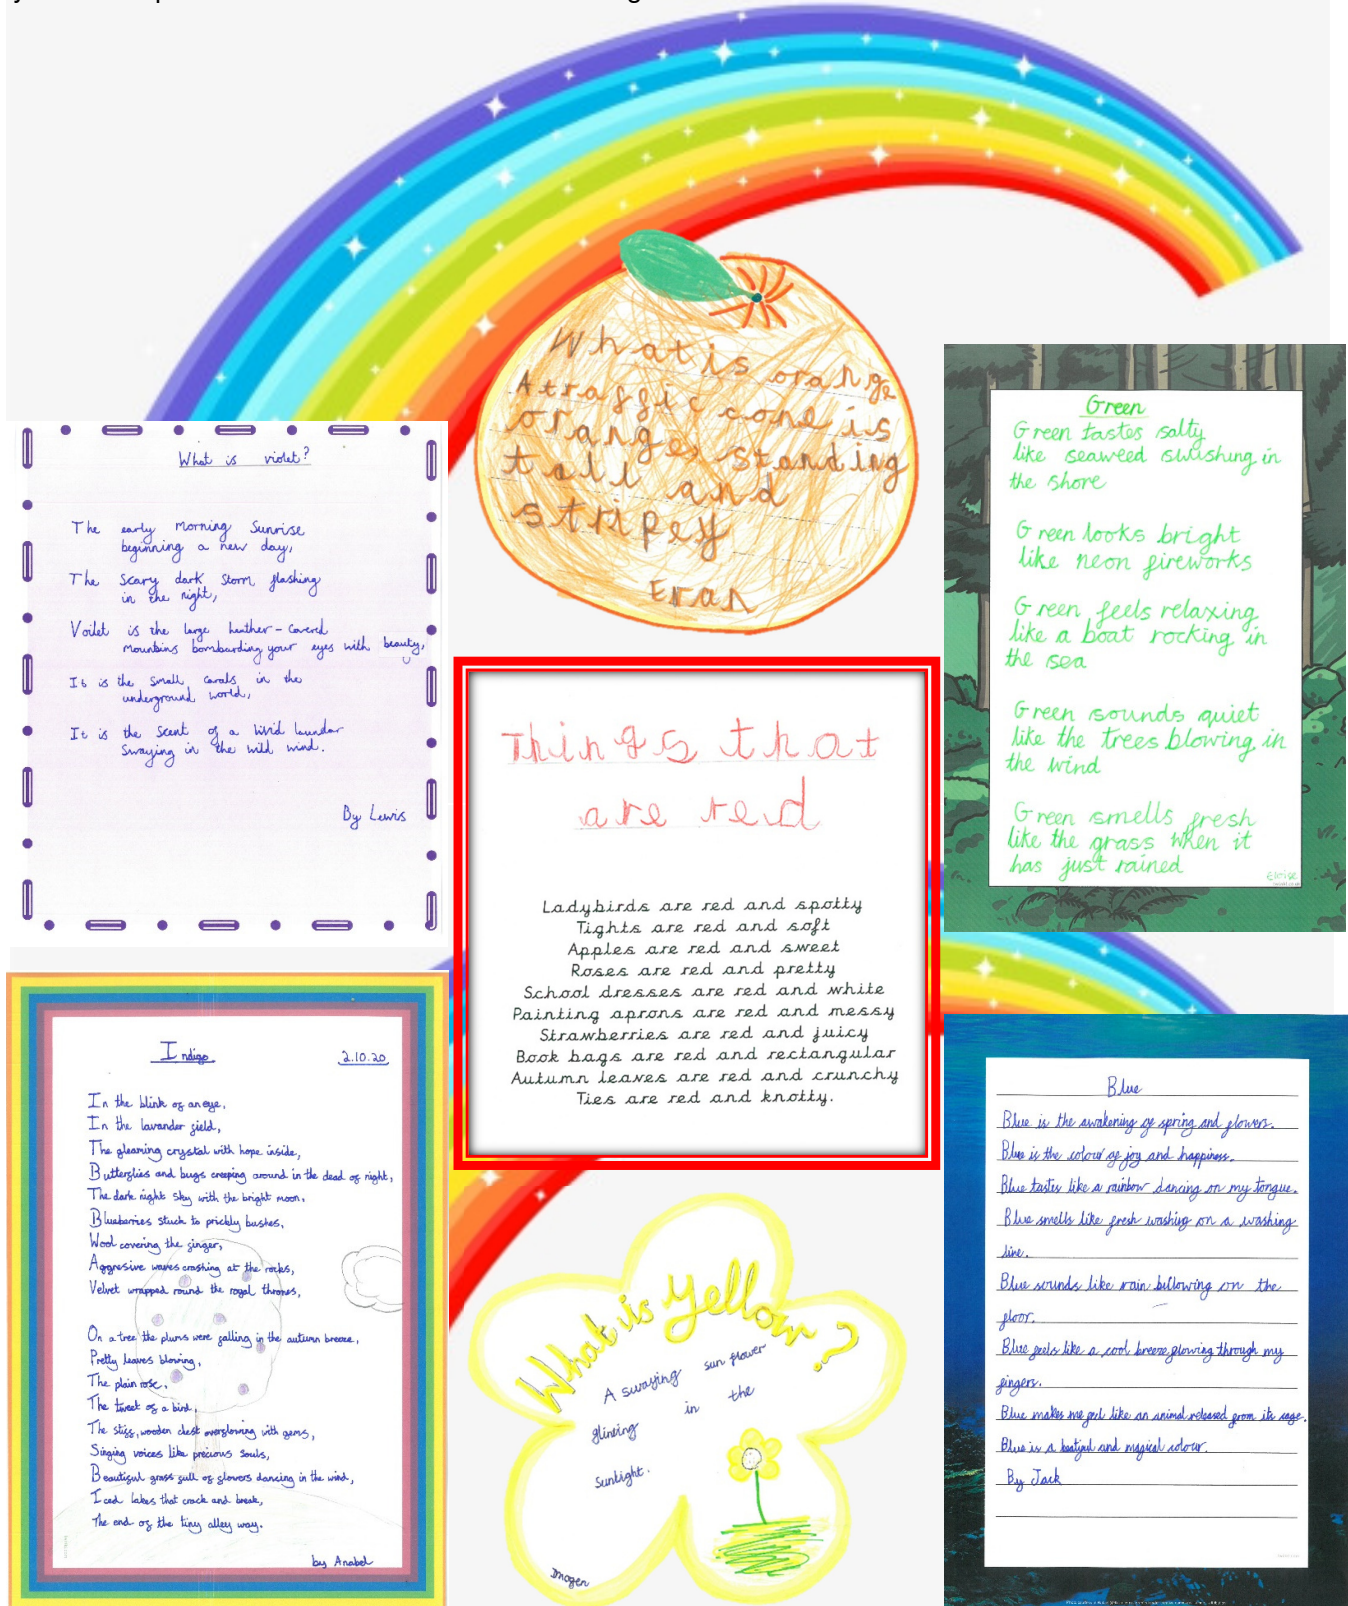 What is orange
A traffic cone is
orange, standing
tall and
stripey
Eran
What is violet?
The early morning Sunrise
beginning a new day,
The scary dark storm flashing
in the night,
Voilet is the large heather-covered
mountins bombarding your eyes with beauty,
It is the small corals in the
underground world,
It is the scent of a vivid laundar
Swaying in the wild wind.
By Lewis
Green
Green tastes salty
like seaweed swishing in
the shore
Green looks bright
like neon fireworks
Green feels relaxing
like a boat rocking in
the sea
Green sounds quiet
like the trees blowing in
the wind
Green smells fresh
like the grass when it
has just rained
Eloise
Things that
are red
Ladybirds are red and spotty
Tights are red and soft
Apples are red and sweet
Roses are red and pretty
School dresses are red and white
Painting aprons are red and messy
Strawberries are red and juicy
Book bags are red and rectangular
Autumn leaves are red and crunchy
Ties are red and knotty.
Indigo 2.10.20
In the blink of an eye,
In the lavander field,
The gleaming crystal with hope inside,
Butterflies and bugs creeping around in the dead of night,
The dark night sky with the bright moon,
Blueberries stuck to prickly bushes,
Wool covering the finger,
Aggresive waves crashing at the rocks,
Velvet wrapped round the royal thrones,
On a tree the plums were falling in the autumn breeze,
Pretty leaves blowing,
The plain rose,
The tweet of a bird,
The stiff, wooden chest overflowing with gems,
Singing voices like precious souls,
Beautiful grass full of flowers dancing in the wind,
Iced lakes that crack and break,
The end of the tiny alley way.
by Anabel
What is Yellow?
A swaying sun flower
glinting in the
Sunlight.
Imogen
Blue
Blue is the awakening of spring and flowers.
Blue is the colour of joy and happiness.
Blue tastes like a rainbow dancing on my tongue.
Blue smells like fresh washing on a washing
line.
Blue sounds like rain bellowing on the
floor.
Blue feels like a cool breeze flowing through my
fingers.
Blue makes me feel like an animal released from its cage.
Blue is a beatiful and magical colour.
By Jack